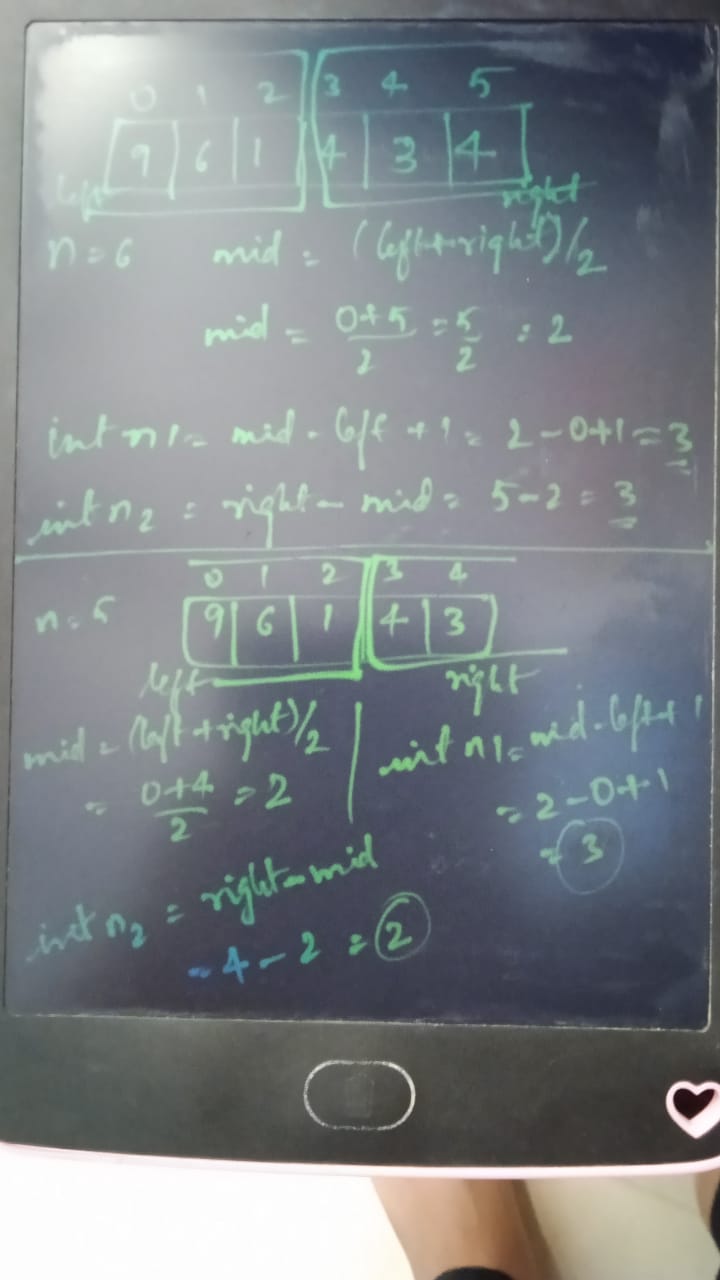 0 1 2 3 4 5
9 6 1 4 3 4
left right
n=6 mid = (left+right)/2
mid = 0+5/2 = 5/2 = 2
int n1= mid-left+1= 2-0+1=3
int n2 = right-mid= 5-2=3
0 1 2 3 4
n=5 9 6 1 4 3
left right
mid = (left+right)/2
= 0+4/2 =2
int n1= mid-left+1
=2-0+1
=3
int n2 = right-mid
=4-2=2